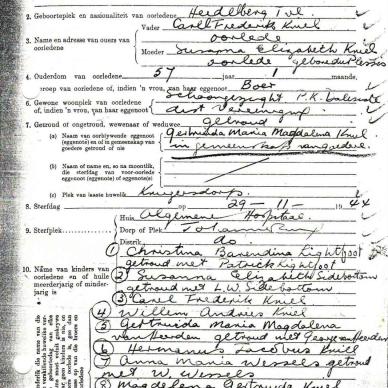 2. Geboorteplek en nasionaliteit van oorledene Heidelberg Tvl.
Vader Carel Frederik Kniel
oorlede
3. Name en adresse van ouers van oorledene
Moeder Susanna Elizabeth Kniel
oorlede gebore du Plessis
4. Ouderdom van oorledene 57 jaar 1 maande,
beroep van oorledene of, indien 'n vrou, van haar eggenoot Boer
6. Gewone woonplek van oorledene of, indien 'n vrou, van haar eggenoot Schoongezicht P.K.
dist Vereeniging
7. Getroud of ongetroud, wewenaar of weduwee getroud
(a) Naam van oorblywende eggenoot (eggenote) en of in gemeenskap van goedere getroud of nie
Gertruida Maria Magdalena Kniel
in gemeenskap van goedere.
(b) Naam of name en, so na moontlik, die sterfdag van voor-oorlede eggenoot (eggenote) of eggenote(s)
(c) Plek van laaste huwelik Krugersdorp.
8. Sterfdag 29 - 11 - 1944
Huis Algemene Hospitaal
9. Sterfplek Dorp of Plaas
Distrik do
10. Name van kinders van oorledene en of hulle meerderjarig of minderjarig is
1 Christina Barendina Lightfoot
getroud met Patrick Lightfoot
2 Susanna Elizabeth Sidebottom
getroud met L.W. Sidebottom
3 Carel Frederik Kniel
4 Willem Andries Kniel
5 Gertruida Maria Magdalena
van Heerden getroud met George van Heerden
6 Hermanus Jacobus Kniel
7 Anna Maria Wessels getroud
met W. Wessels
8 Magdalena Gertruida Kniel